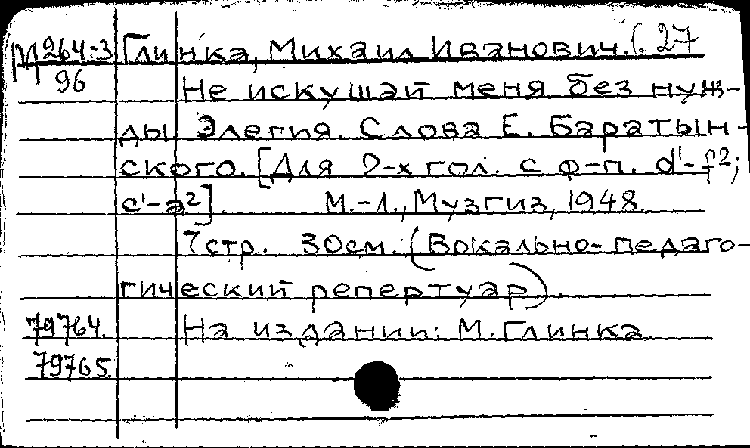 М 264:3 Глинка, Михаил Иванович. (. 27
96 Не искушай меня без нуж-
ды. Элегия. Слова Е. Баратын-
ского. [Для 2-х гол. с ф-п. d¹-f²;
c¹-a²]. М.-Л., Музгиз, 1948.
7 стр. 30 см. (Вокально-педаго-
гический репертуар).
79764. На издании: М. Глинка
79765.